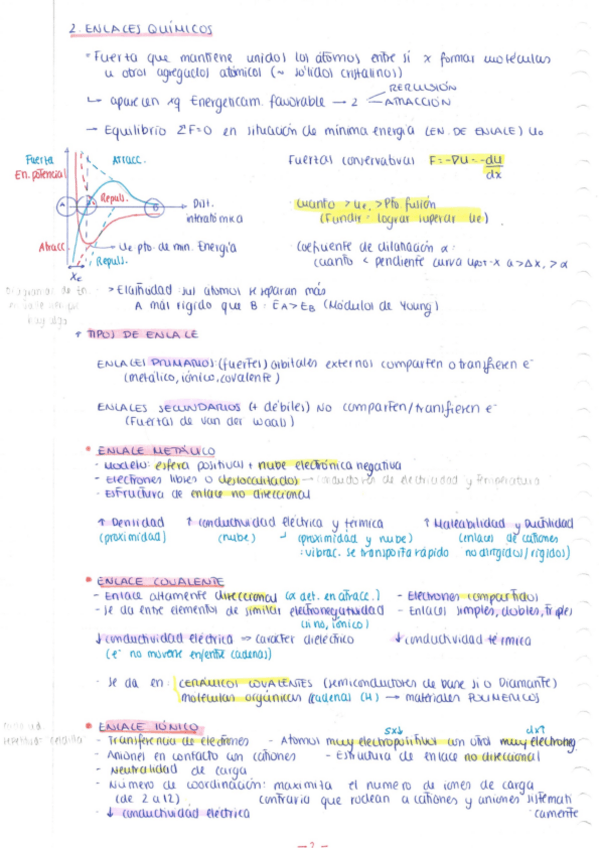 2. ENLACES QUÍMICOS
Fuerza que mantiene unidos los átomos entre sí x formar moléculas
u otros agregados atómicos (~ sólidos cristalinos)
aparecen xq Energéticam. favorable → 2
REPULSIÓN
ATRACCIÓN
→ Equilibrio ΣF=0 en situación de mínima energía (EN. DE ENLACE) U₀
Fuerza
En. potencial
Atracc.
Repuls.
Dist.
interatómica
Atracc.
Ue pto. de min. Energía
Repuls.
Fuerzas conservativas F=-∇U=-dU/dx
cuanto > Ue, > Pto. fusión
(Fundir: lograr superar Ue)
Coeficiente de dilatación α:
cuanto < pendiente curva Upot. x a > Δx, > α
> Elasticidad: sus átomos se separan más
A más rígido que B: EA>EB (Módulos de Young)
TIPOS DE ENLACE
ENLACES PRIMARIOS: (fuertes) orbitales externos comparten o transfieren e⁻
(metálico, iónico, covalente)
ENLACES SECUNDARIOS (+ débiles) NO comparten/transfieren e⁻
(Fuerzas de van der Waals)
ENLACE METÁLICO
- Modelo: esfera positivas + nube electrónica negativa
- Electrones libres o deslocalizados → conductores de electricidad y temperatura
- Estructura de enlace no direccional
↑ Densidad ↑ conductividad eléctrica y térmica ↑ Maleabilidad y Ductilidad
(proximidad) (nube) (proximidad y nube) (enlaces de cationes
: vibrac. se transporta rápido no dirigidos/rígidos)
ENLACE COVALENTE
- Enlace altamente direccional (x det. en atracc.) - Electrones compartidos
- Se da entre elementos de similar electronegatividad - Enlaces simples, dobles, triples
(si no, iónico)
↓ conductividad eléctrica ⇒ carácter dieléctrico ↓ conductividad térmica
(e⁻ no moverse en/entre cadenas)
- se da en: CERÁMICOS COVALENTES (semiconductores de base si o Diamante)
moléculas orgánicas (cadenas (H) → materiales POLIMÉRICOS
ENLACE IÓNICO
- Transferencia de electrones - Átomos muy electropositivos con otros muy electroneg.
- Aniones en contacto con cationes - Estructura de enlace no direccional
- Neutralidad de carga
- Número de coordinación: maximita el número de iones de carga
(de 2 a 12) contraria que rodean a cationes y aniones sistemáti
camente
- ↓ conductividad eléctrica
- 2 -